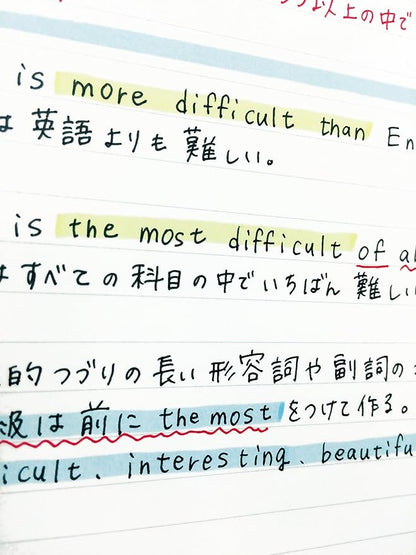 以上の中で
is more difficult than En
は 英語よりも 難しい。
is the most difficult of al
はすべての 科目の中でいちばん 難しい
的つづりの長い 形容詞や 副詞の
級は 前に the most をつけて作る。
icult、interesting、beautifu